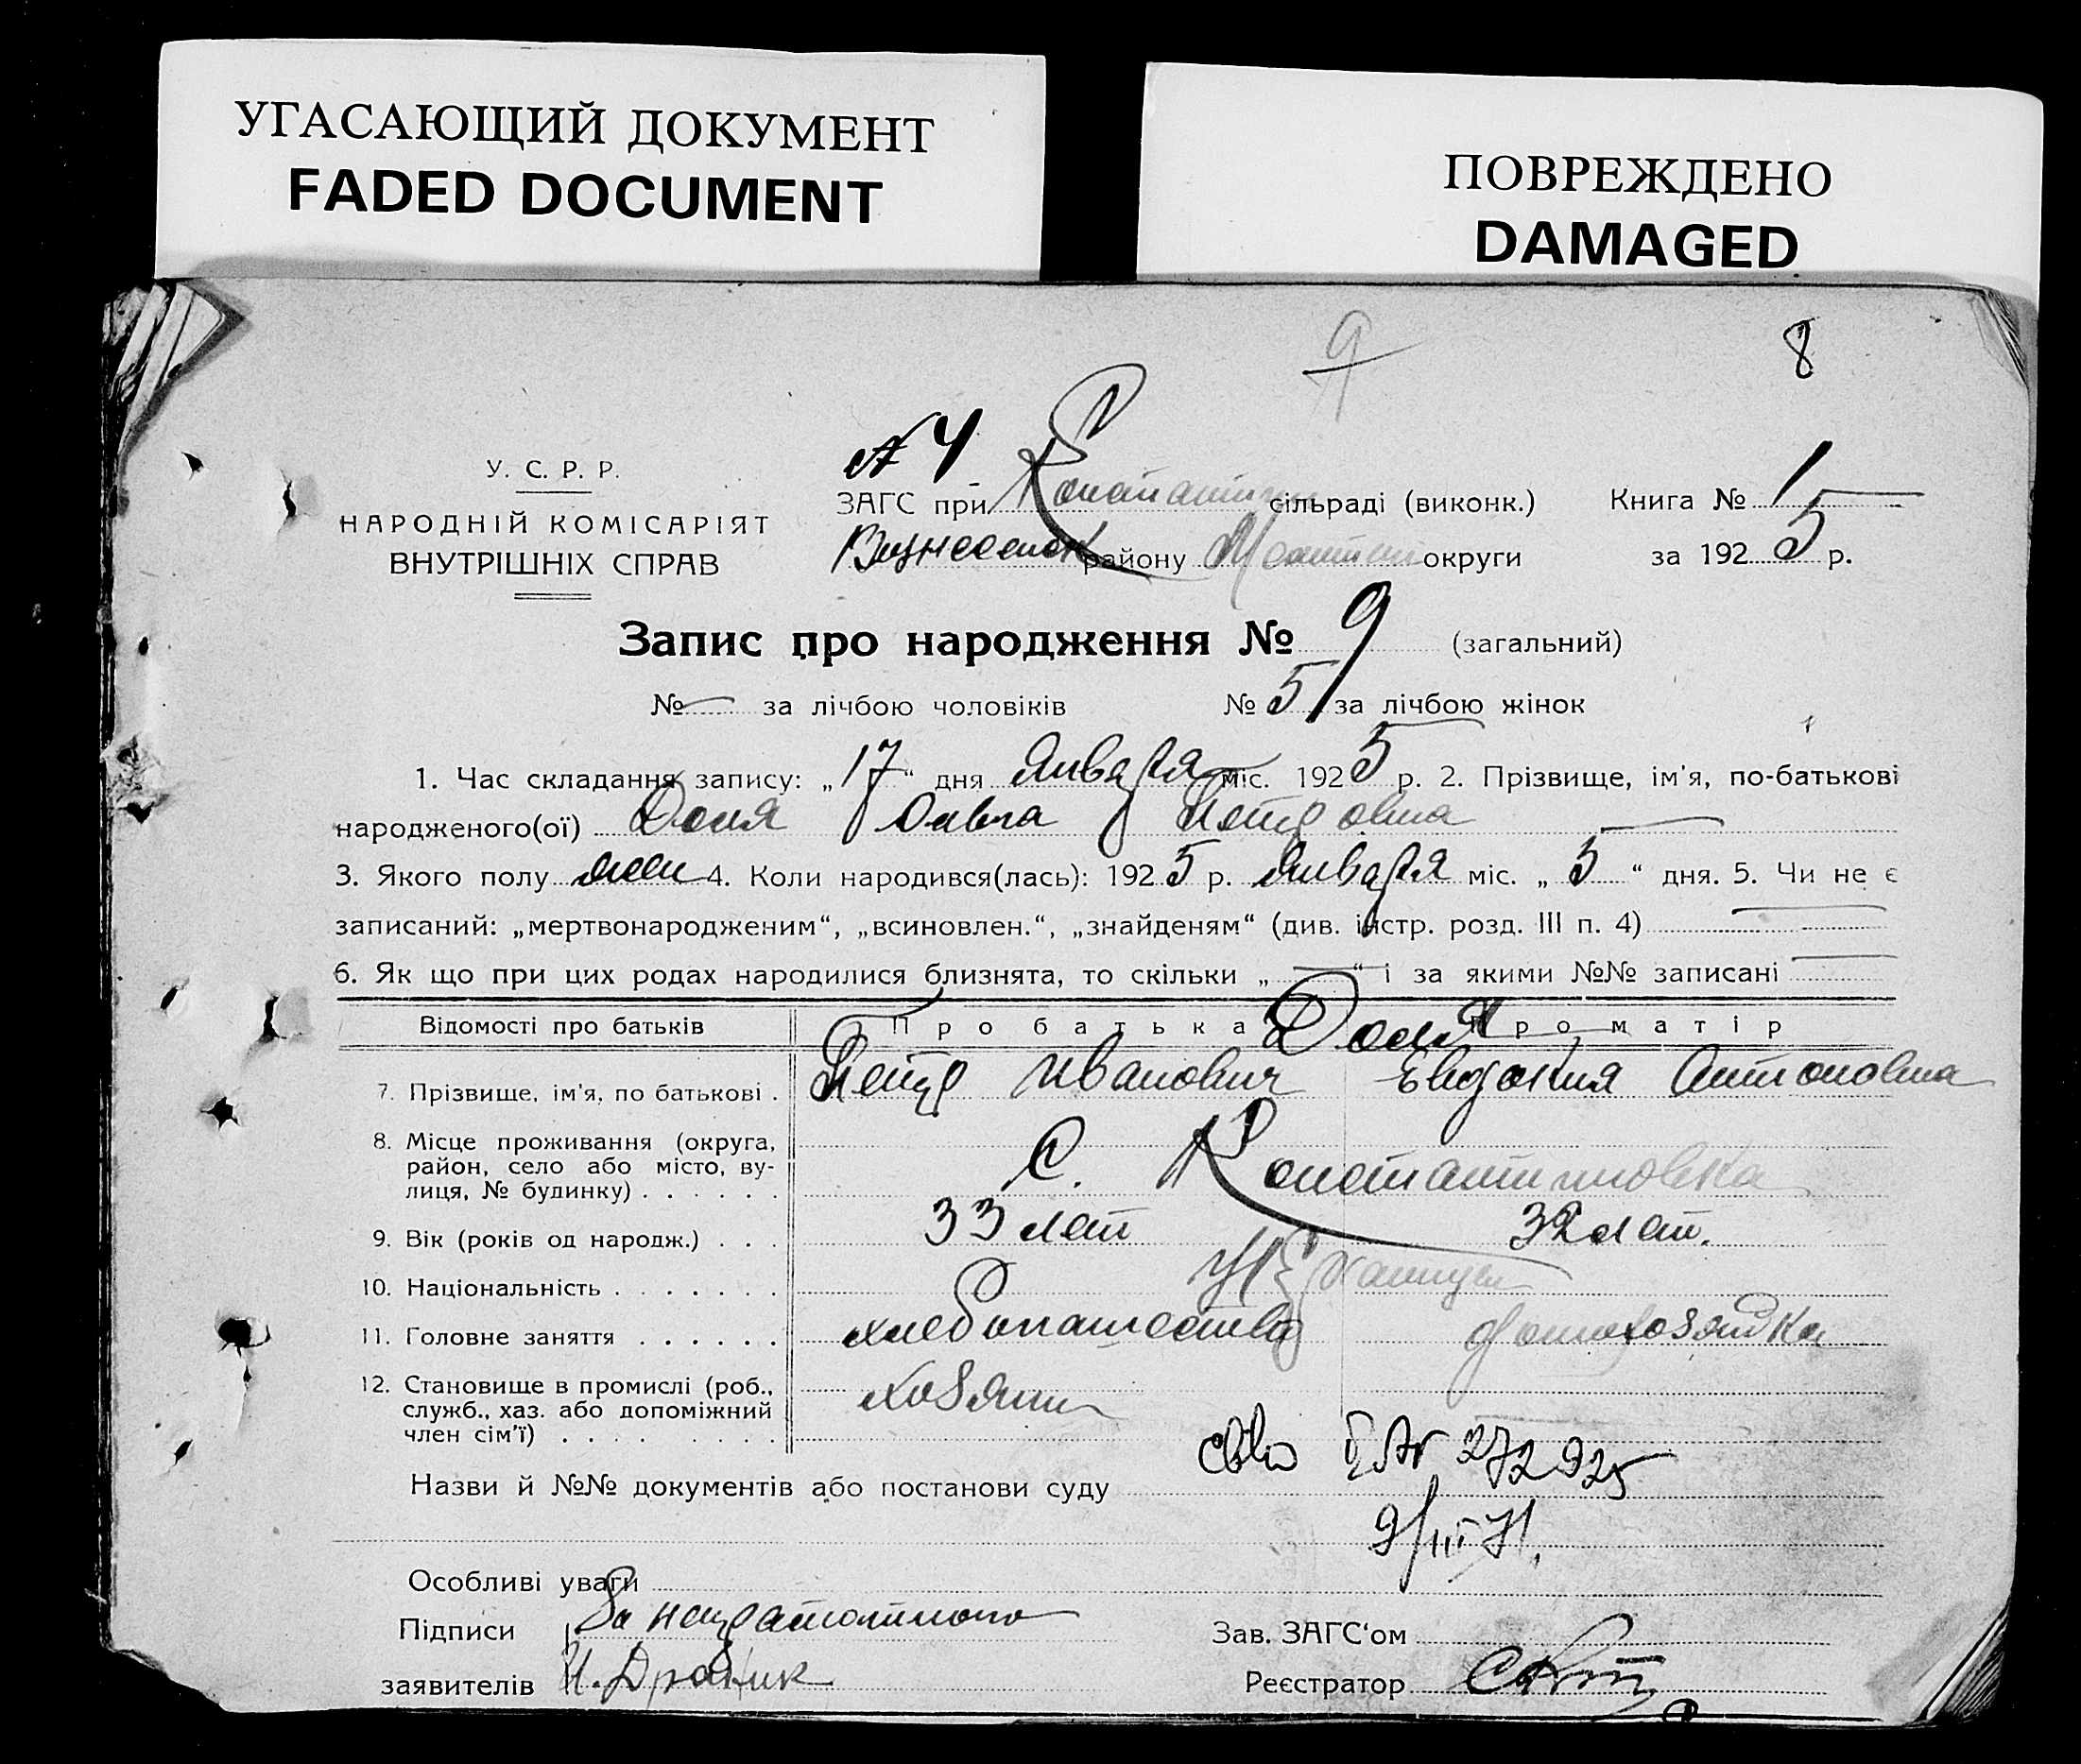 УГАСАЮЩИЙ ДОКУМЕНТ
FADED DOCUMENT
ПОВРЕЖДЕНО
DAMAGED
9
8
У. С. Р. Р.
НАРОДНІЙ КОМІСАРІЯТ
ВНУТРІШНІХ СПРАВ
№ 4
ЗАГС при Константин сільраді (виконк.)
Вознесенск району округи
Книга № 1
за 1925 р.
Запис про народження № 9 (загальний)
№ — за лічбою чоловіків № 5 за лічбою жінок
1. Час складання запису: „17“ дня Января міс. 1925 р. 2. Прізвище, ім'я, по-батькові
народженого(ої) Доля Ольга Петровна
3. Якого полу жен 4. Коли народився(лась): 1925 р. Января міс. „5“ дня. 5. Чи не є
записаний: „мертвонародженим“, „всиновлен.“, „знайденям“ (див. інстр. розд. III п. 4) —
6. Як що при цих родах народилися близнята, то скільки „—“ і за якими №№ записані —
Відомості про батьків Про батька Про матір
Доля
7. Прізвище, ім'я, по батькові . Петр Иванович Евдокия Антоновна
8. Місце проживання (округа,
район, село або місто, ву-
лиця, № будинку) . . . . . . С. Константиновка
9. Вік (років од народж.) . . . 33 лет 32 лет.
10. Національність . . . . . . . Украинцы
11. Головне заняття . . . . . . хлебопашество домохозяйка
12. Становище в промислі (роб.,
служб., хаз. або допоміжний
член сім'ї) . . . . . . . . . хозяин
272925
Назви й №№ документів або постанови суду
9/III 71.
Особливі уваги
Підписи За неграмотного
заявителів
Зав. ЗАГС'ом
Реєстратор